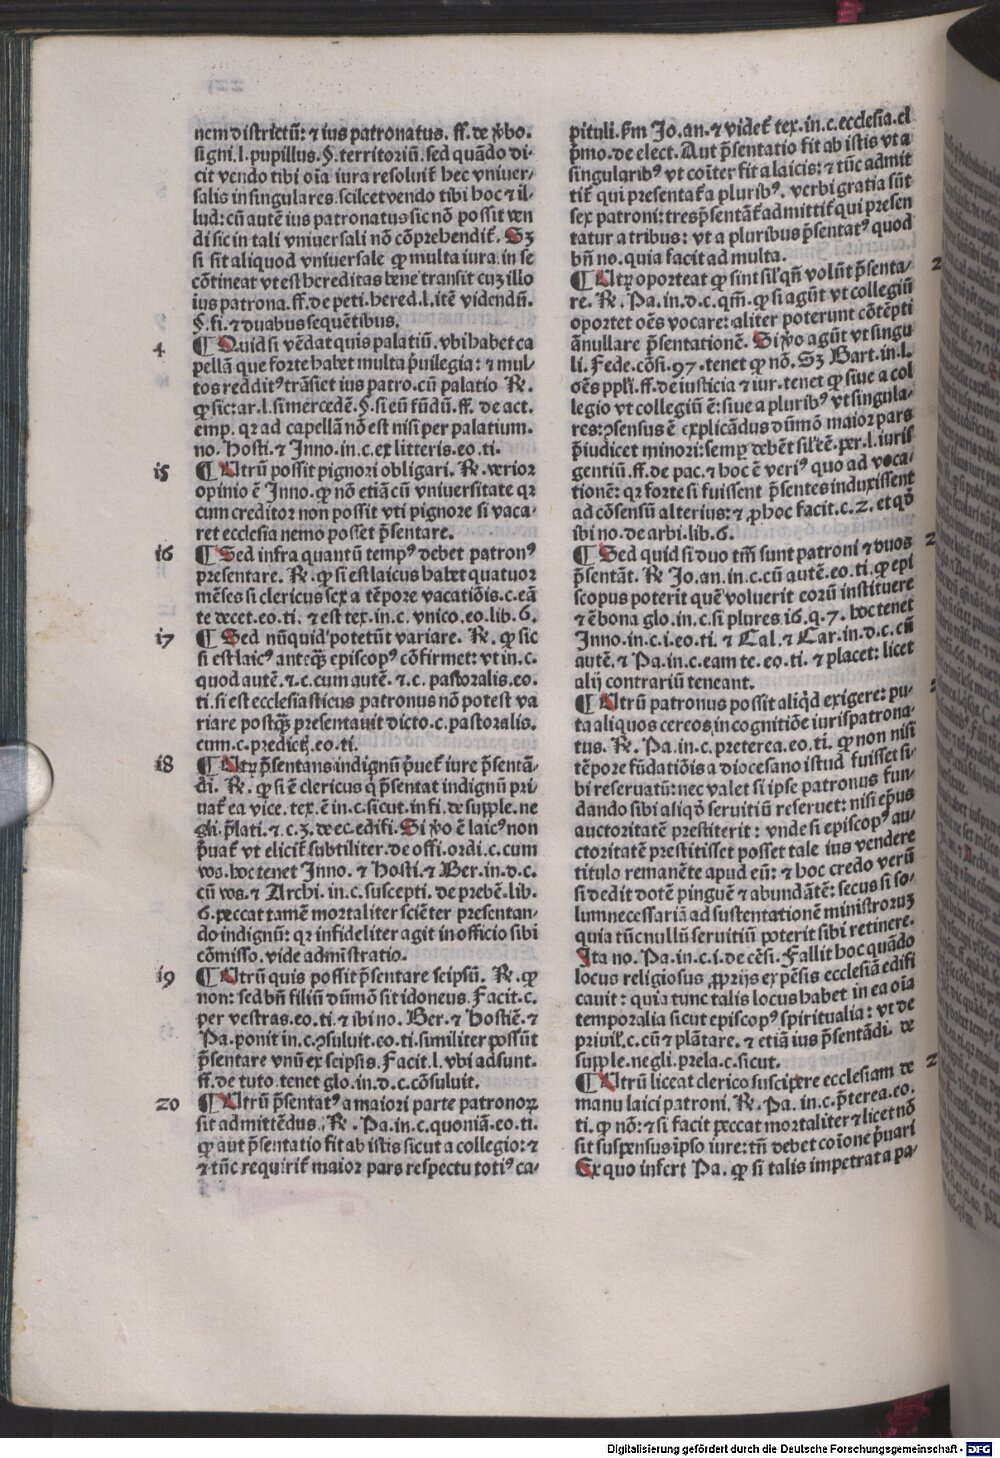 nem districtū: ⁊ ius patronatus. ff. de v̄bo.
signi. l. pupillus. §. territoriū. sed quādo di-
cit vendo tibi oīa iura resoluit᷑ hec vniuer-
salis in singulares. scilcet vendo tibi hoc ⁊ il-
lud: cū autē ius patronatus sic nō possit ven
di sic in tali vniuersali nō cōprehendit᷑. Sꝫ
si sit aliquod vniuersale ꝙ multa iura in se
cōtineat vt est hereditas bene transit cuꝫ illo
ius patrona. ff. de peti. hered. l. itē videndū.
§. fi. ⁊ duabus sequētibus.
4 ¶ Quid si vēdat quis palatiū. vbi habet ca
pellā que forte habet multa p̄uilegia: ⁊ mul-
tos redditꝰ trāsiet ius patro. cū palatio ℞.
ꝙ sic: ar. l. si mercedē. §. si eū fūdū. ff. de act.
emp. qꝛ ad capellā nō est nisi per palatium.
no. Hosti. ⁊ Inno. in. c. ex litteris. eo. ti.
15 ¶ Utrū possit pignori obligari. ℞. verior
opinio ē Inno. ꝙ nō etiā cū vniuersitate qꝛ
cum creditor non possit vti pignore si vaca-
ret ecclesia nemo posset p̄sentare.
16 ¶ Sed infra quantū tempꝰ debet patronꝰ
presentare. ℞. ꝙ si est laicus habet quatuor
mēses si clericus sex a tēpore vacatiōis. c. eā
te decet. eo. ti. ⁊ est tex. in. c. vnico. eo. lib. 6.
17 ¶ Sed nūquid potetūt variare. ℞. ꝙ sic
si est laicꝰ anteqꝫ episcopꝰ cōfirmet: vt in. c.
quod autē. ⁊. c. cum autē. ⁊. c. pastoralis. eo.
ti. si est ecclesiasticus patronus nō potest va
riare postqꝫ presentauit dicto. c. pastoralis.
cum. c. predictꝫ. eo. ti.
18 ¶ Utrꝫ p̄sentans indignū p̄uet᷑ iure p̄sentā-
di. ℞. ꝙ si ē clericus q̇ p̄sentat indignū pri
uat᷑ ea vice. tex. ē in. c. sicut. in fi. de supple. ne
gli. p̄lati. ⁊. c. 3. de ec. edifi. Si v̄o ē laicꝰ non
p̄uat᷑ vt elicit᷑ subtiliter. de offi. ordi. c. cum
vos. hoc tenet Inno. ⁊ Hosti. ⁊ Ber. in. d. c.
cū vos. ⁊ Archi. in. c. suscepti. de prebē. lib.
6. peccat tamē mortaliter sciēter presentan-
do indignū: qꝛ infideliter agit in officio sibi
cōmisso. vide admīstratio.
19 ¶ Utrū quis possit p̄sentare seipsū. ℞. ꝙ
non: sed bn̄ filiū dūmō sit idoneus. Facit. c.
per vestras. eo. ti. ⁊ ibi no. Ber. ⁊ Hostiē. ⁊
Pa. ponit in. c. ꝯsuluit. eo. ti. similiter possūt
p̄sentare vnū ex seipsis. Facit. l. vbi adsunt.
ff. de tuto. tenet glo. in. d. c. cōsuluit.
20 ¶ Utrū p̄sentatꝰ a maiori parte patronoꝝ
sit admittēdus. ℞. Pa. in. c. quoniā. eo. ti.
ꝙ aut p̄sentatio fit ab istis sicut a collegio: ⁊
⁊ tūc requirit᷑ maior pars respectu totiꝰ ca-
pituli. ẜm Jo. an. ⁊ videt᷑ tex. in. c. ecclesia. el
p̄mo. de elect. Aut p̄sentatio fit ab istis vt a
singularibꝰ vt coīter fit a laicis: ⁊ tūc admit
tit᷑ qui presentat᷑ a pluribꝰ. verbi gratia sūt
sex patroni: tres p̄sentāt᷑ admittit᷑ qui presen
tatur a tribus: vt a pluribus p̄sentatꝰ quod
bn̄ no. quia facit ad multa.
2 ¶ Utrꝫ oporteat ꝙ sint sil̕ qn̄ volūt p̄senta-
re. ℞. Pa. in. d. c. qm̄. ꝙ si agūt vt collegiū
oportet oēs vocare: aliter poterunt cōtēpti
ānullare p̄sentationē. Si v̄o agūt vt singu
li. Fede. cōsi. 97. tenet ꝙ nō. Sꝫ Bart. in. l.
oēs ppl̕i. ff. de iusticia ⁊ iur. tenet ꝙ siue a col
legio vt collegiū ē: siue a pluribꝰ vt singula-
res: ꝯsensus ē explicādus dūmō maior pars
p̄iudicet minori: semꝑ debēt sil̕ eē. per. l. iuris
gentiū. ff. de pac. ⁊ hoc ē veriꝰ quo ad voca-
tionē: qꝛ forte si fuissent p̄sentes induxissent
ad cōsensū alterius: ⁊ ꝓ hoc facit. c. 2. et qd̄
ibi no. de arbi. lib. 6.
2 ¶ Sed quid si duo tm̄ sunt patroni ⁊ duos
p̄sentāt. ℞ Jo. an. in. c. cū autē. eo. ti. ꝙ epī
scopus poterit quē voluerit eorū instituere
⁊ ē bona glo. in. c. si plures. 16. q. 7. hoc tenet
Inno. in. c. i. eo. ti. ⁊ Cal. ⁊ Car. in. d. c. cū
autē. ⁊ Pa. in. c. eam te. eo. ti. ⁊ placet: licet
alij contrariū teneant.
¶ Utrū patronus possit aliq̇d exigere: pu-
ta aliquos cereos, in cognitiōe iurispatrona-
tus. ℞. Pa. in. c. preterea. eo. ti. ꝙ non nisi
tēpore fūdatiōis a diocesano istud fuisset si-
bi reseruatū: nec valet si ipse patronus fun-
dando sibi aliqd̄ seruitiū reseruet: nisi ep̄us
auctoritatē prestiterit: vnde si episcopꝰ au-
ctoritatē prestitisset posset tale ius vendere
titulo remanēte apud eū: ⁊ hoc credo verū
si dedit dotē pinguē ⁊ abundātē: secus si so-
lum necessariā ad sustentationē ministroruꝫ
quia tūc nullū seruitiū poterit sibi retinere.
Ita no. Pa. in. c. i. de cēsi. Fallit hoc quādo
locus religiosus ꝓprijs expēsis ecclesiā edifi
cauit: quia tunc talis locus habet in ea oīa
temporalia sicut episcopꝰ spiritualia: vt de
priuil̕. c. cū ⁊ plātare. ⁊ etiā ius p̄sentādi. de
supple. negli. prela. c. sicut.
2 ¶ Utrū liceat clerico suscipere ecclesiam de
manu laici patroni. ℞. Pa. in. c. p̄terea. eo.
ti. ꝙ nō: ⁊ si facit peccat mortaliter ⁊ licet nō
sit suspensus ipso iure: tn̄ debet coīone p̄uari
Ex quo infert Pa. ꝙ si talis impetrat a pa-
Digitalisierung gefördert durch die Deutsche Forschungsgemeinschaft - DFG